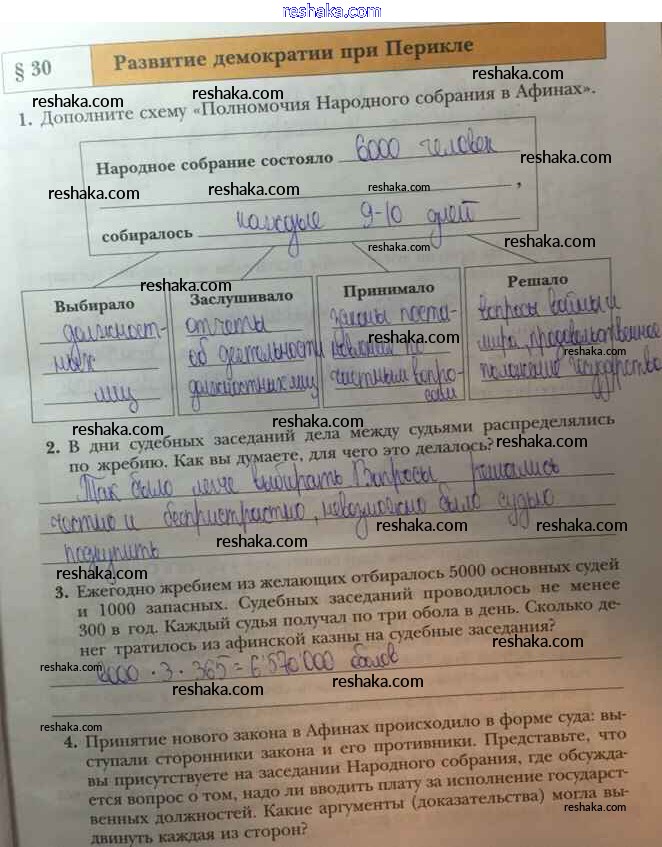 reshaka.com
§ 30
Развитие демократии при Перикле
1. Дополните схему «Полномочия Народного собрания в Афинах».
Народное собрание состояло 6000 человек
,
собиралось каждые 9-10 дней
Выбирало
должност-
ных
лиц
Заслушивало
отчеты
об деятельности
должностных лиц
Принимало
законы поста-
новления по
частным вопро-
сам
Решало
вопросы войны и
мира, продовольственное
положение государства
2. В дни судебных заседаний дела между судьями распределялись
по жребию. Как вы думаете, для чего это делалось?
Так было легче выбирать Вопросы решались
честно и беспристрастно, невозможно было судью
подкупить
3. Ежегодно жребием из желающих отбиралось 5000 основных судей
и 1000 запасных. Судебных заседаний проводилось не менее
300 в год. Каждый судья получал по три обола в день. Сколько де-
нег тратилось из афинской казны на судебные заседания?
6000 · 3 · 365 = 6'570'000 оболов
4. Принятие нового закона в Афинах происходило в форме суда: вы-
ступали сторонники закона и его противники. Представьте, что
вы присутствуете на заседании Народного собрания, где обсужда-
ется вопрос о том, надо ли вводить плату за исполнение государст-
венных должностей. Какие аргументы (доказательства) могла вы-
двинуть каждая из сторон?